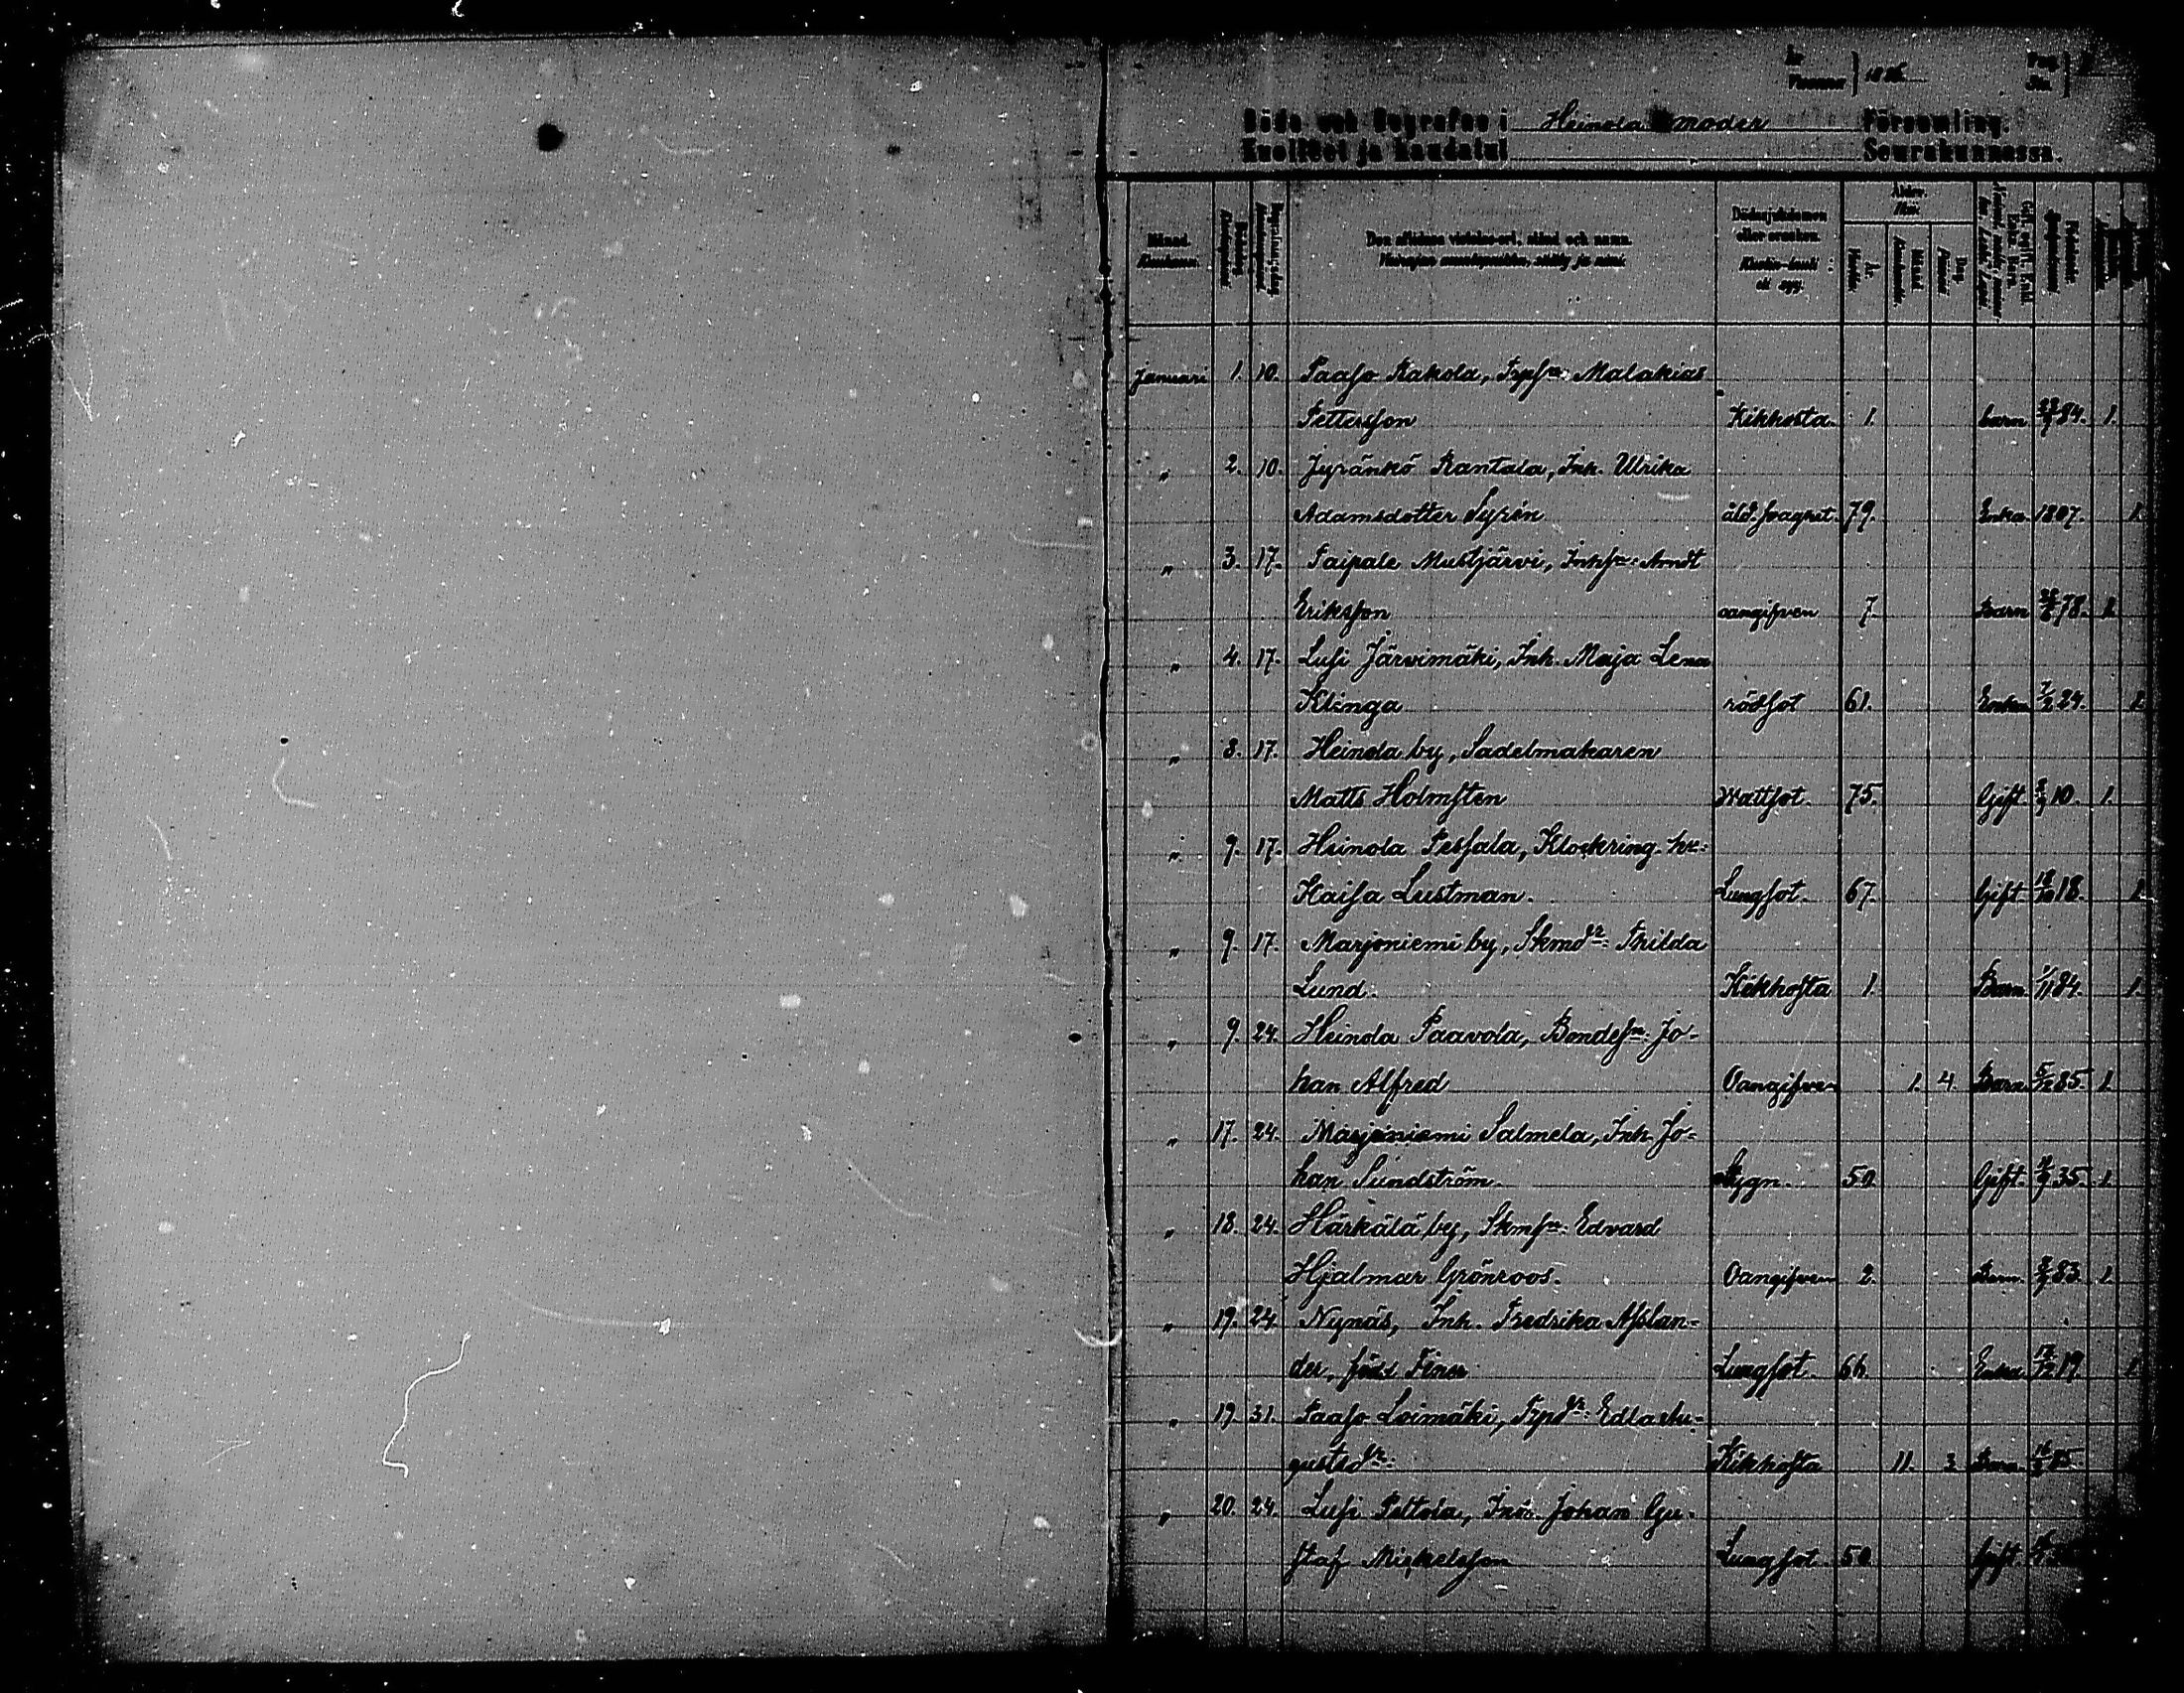 År
Vuonna 1886
Pag.
Siv.
Döde och Begrafne i Heinola moder Församling.
Kuolleet ja haudatut Seurakunnassa.
Månad. Kuukausi.
Den aflidnes vistelse-ort, stånd och namn.
Dödssjukdomen eller orsaken.
Ålder. Ikä.
Januari 1. 10. Paaso Kakola, Trpsn: Malakias
Pettersson Kikhosta 1. barn 84. 1.
" 2. 10. Jyränkö Rantala, Inh. Ulrika
Adamsdotter Syrén åld. svaghet. 79. Enka. 1807. 1.
" 3. 17. Taipale Mustjärvi, Inhsn: Arndt
Eriksson oangifven 7. Barn 78. 1.
" 4. 17. Lusi Järvimäki, Inh. Maja Lena
Klinga rödsot 61. Enka 7/2 24. 1.
" 8. 17. Heinola by, Sadelmakaren
Matts Holmsten Wattsot. 75. Gift. 10. 1.
" 9. 17. Heinola Pessala, Klockring. hu:
Kaisa Lustman. Lungsot. 67. Gift. 18/10 18. 1
" 9. 17. Marjoniemi by, Skmdr: Thilda
Lund. Kikhosta 1. Barn. 1/11 84. 1.
" 9. 24. Heinola Paavola, Bondesn: Jo-
han Alfred Oangifven 1. 4. Barn 5/12 85. 1.
" 17. 24. Marjoniemi Salmela, Inh. Jo-
han Sundström. Stygn. 50. Gift. 35. 1.
" 18. 24. Härkälä by, Skmsn: Edvard
Hjalmar Grönroos. Oangifven 2. Barn. 83. 1.
" 19. 24. Nynäs, Inh. Fredrika Asslan-
der, född Lungsot. 66. Enka. 12/12 19. 1
" 19. 31. Paaso Loimäki, Trpdr: Edla Au-
gustsdr: Kikhosta 11. 3 Barn. 85.
" 20. 24. Lusi Peltola, Inh. Johan Gu-
staf Mickelsson Lungsot. 50 Gift.